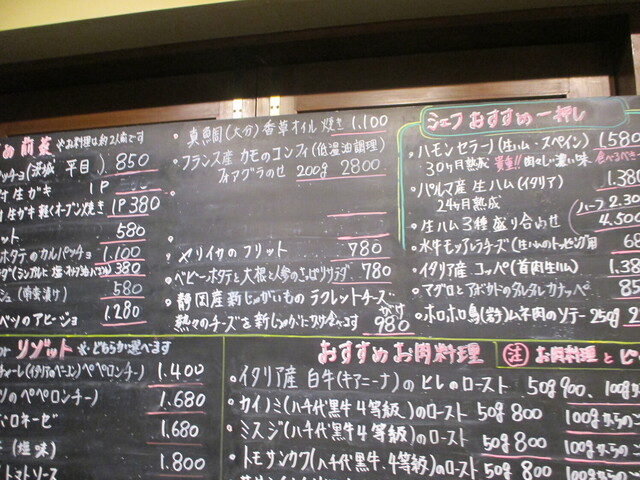 め前菜 ※お料理は約2人前です
(茨城 平目) 850
付生ガキ 1P
付生ガキ 軽くオーブン焼き 1P 380
ット 580
ホタテのカルパッチョ 1.100
380
580
ベツのアヒージョ 1.280
・真鯛(大分)香草オイル焼き 1,100
・フランス産 カモのコンフィ(低温油調理)
フォアグラのせ 200g 2800
・ヤリイカのフリット 780
・ベビーホタテと大根と人参のさっぱりサラダ 780
・静岡産新じゃがいものラクレットチーズがけ
熱々のチーズを新じゃがにかけ食べます 980
シェフおすすめ一押し
・ハモンセラーノ(生ハム・スペイン) 1.580
30ヶ月熟成 貴重!! 肉々しい濃い味
・パルマ産 生ハム(イタリア) 1.380
24ヶ月熟成
・生ハム3種盛り合わせ ハーフ2.300
4.500
・水牛モッツァレラチーズ(生ハムのトッピング用)
・イタリア産 コッパ(首肉生ハム)
・マグロとアボカドのタルタルカナッペ
・ホロホロ鳥(岩手)ムネ肉のソテー 250g
or リゾット ※どちらか選べます
ペペロンチー) 1.400
ツのペペロンチー) 1.680
ボロネーゼ 1,680
(塩味) 1.800
トマトソース
おすすめお肉料理
注 お肉料理とピ
・イタリア産 白牛(キアニーナ)のヒレのロースト 50g 900、100g
・カイノミ(八千代黒牛4等級)のロースト 50g 800 100gからの
・ミスジ(八千代黒牛4等級)のロースト 50g 800 100gからのこ
・トモサンカク(八千代黒牛、4等級)のロースト 50g 800 100gから